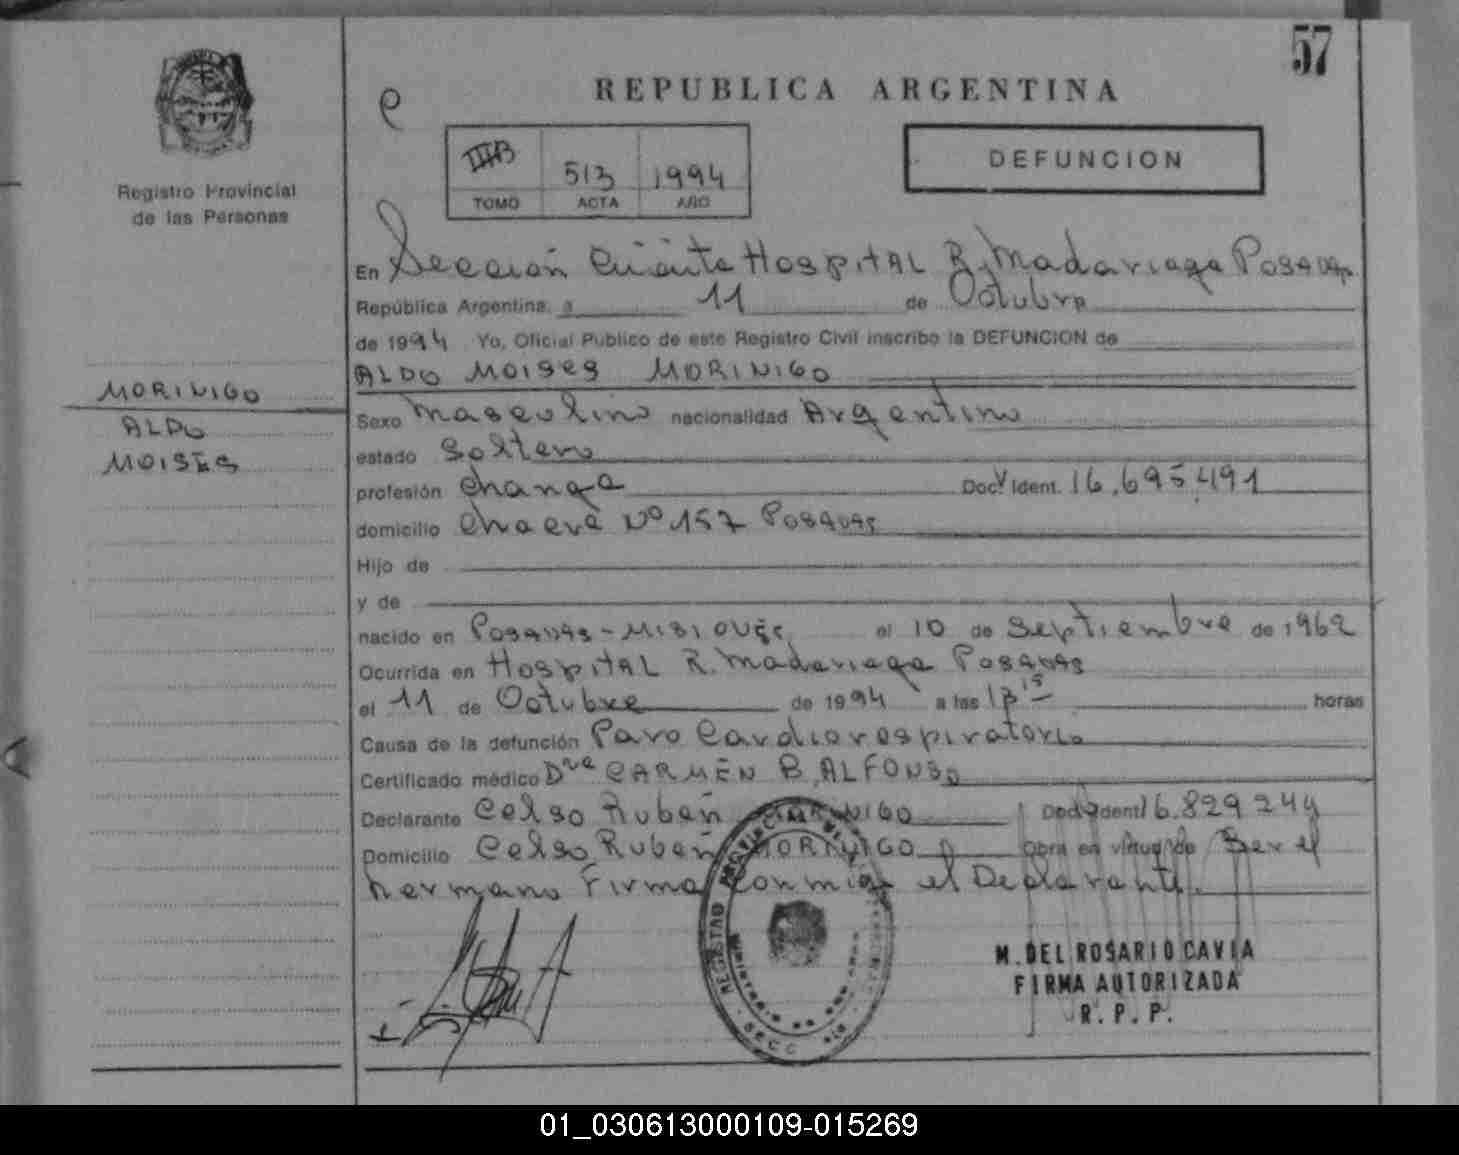 57
REPUBLICA ARGENTINA
e
IIIB 513 1994
TOMO ACTA AÑO
DEFUNCION
Registro Provincial
de las Personas
En Sección Hospital R. Madariaga Posadas
República Argentina, a 11 de Octubre
de 1994 Yo, Oficial Público de este Registro Civil inscribo la DEFUNCION de
ALDO MOISES MORINIGO
MORINIGO
ALDO
MOISES
Sexo Masculino nacionalidad Argentino
estado Soltero
profesión Changa Doc. Ident. 16.695.491
domicilio Nº 157 POSADAS
Hijo de
y de
nacido en POSADAS-MISIONES el 10 de Septiembre de 1962
Ocurrida en HOSPITAL R. Madariaga Posadas
el 11 de Octubre de 1994 a las 13 15 horas
Causa de la defunción Paro Cardiorespiratorio
Certificado médico Dra CARMEN B. ALFONSO
Declarante Celso Ruben MORINIGO Doc. Ident. 16.829.244
Domicilio Celso Ruben MORINIGO Obra en virtud de Ser el
hermano Firma Conmigo el Declarante.
REGISTRO PROVINCIAL
SECC
M. DEL ROSARIO CAVIA
FIRMA AUTORIZADA
R. P. P.
01_030613000109-015269